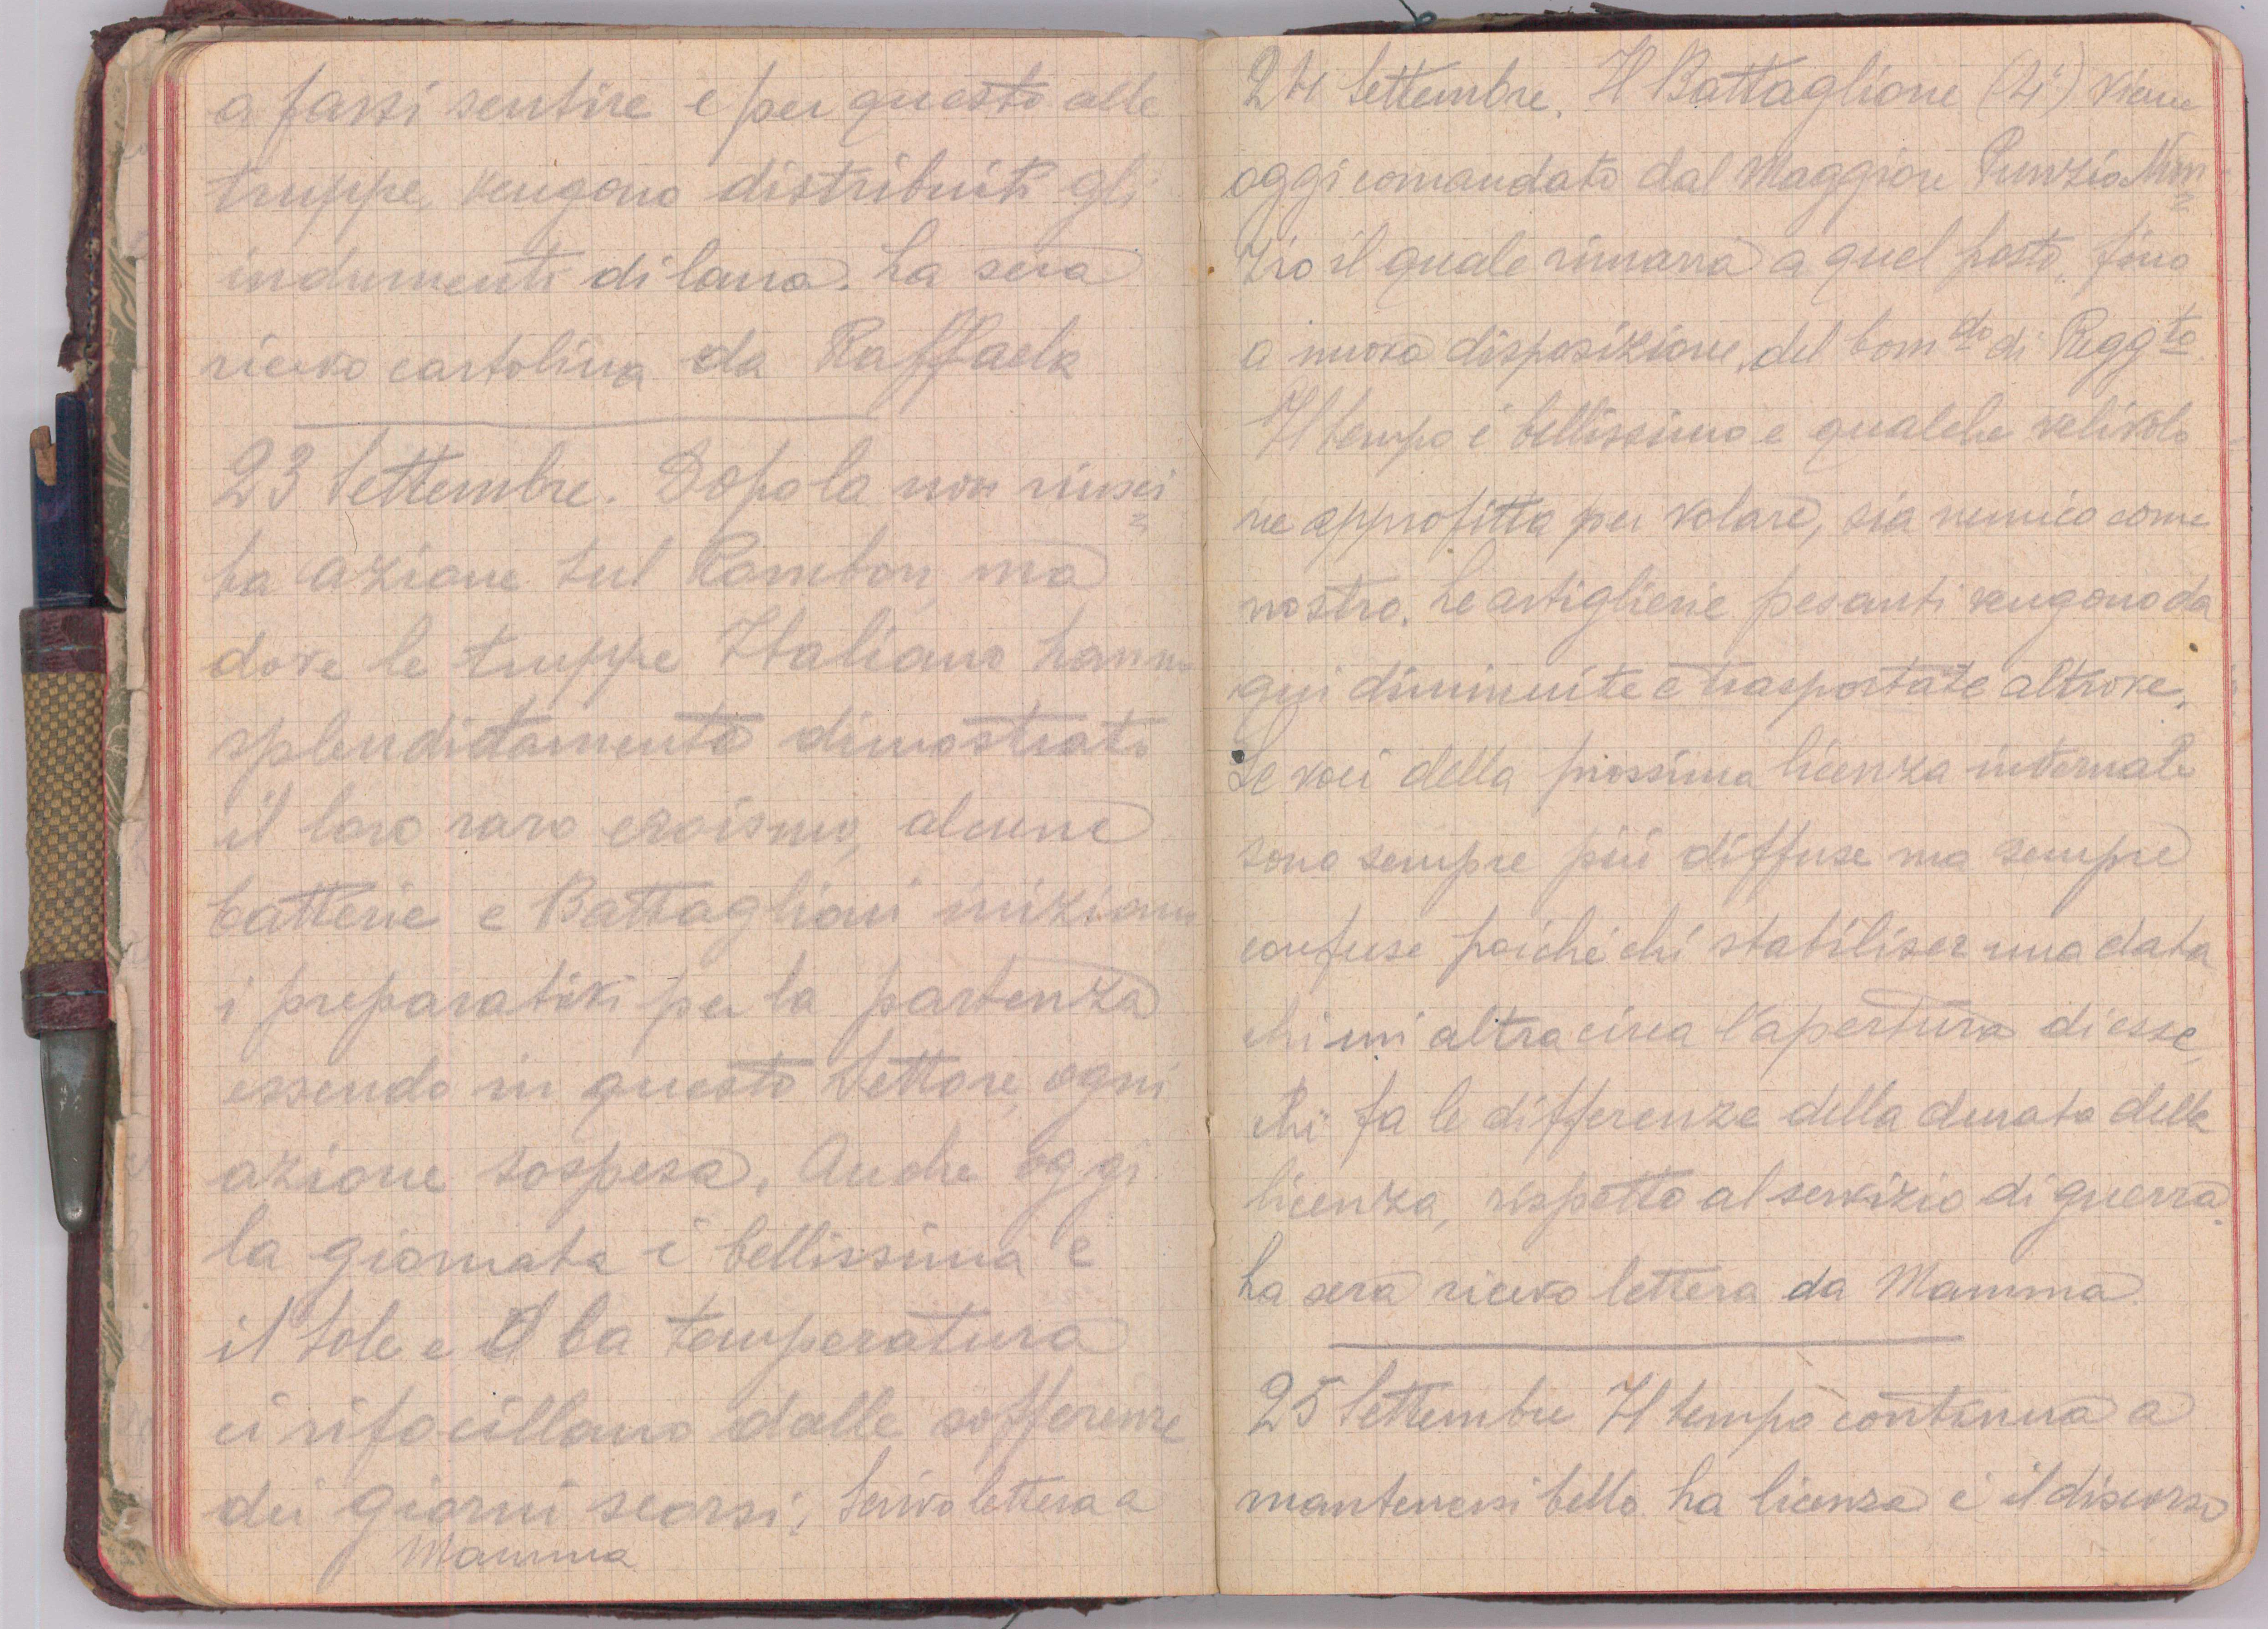 a farsi sentire e per questo alle
truppe, vengono distribuiti gli
indumenti di lana. La sera
ricevo cartolina da Raffaela
23 Settembre. Dopo la non riusci=
ta azione sul Rombon, ma
dove le truppe Italiane hanno
splendidamente dimostrato
il loro raro eroismo, alcune
batterie e Battaglioni iniziano
i preparativi per la partenza
essendo in questo Settore, ogni
azione sospesa. Anche oggi
la giornata è bellissima e
il Sole e la temperatura
ci rifocillano dalle sofferenze
dei giorni scorsi. Scrivo lettera a
Mamma
24 Settembre. Il Battaglione (4°) viene
oggi comandato dal Maggiore Nun=
zio il quale rimarrà a quel posto, fino
a nuova disposizione, del Com do di Regg to.
Il tempo è bellissimo e qualche velivolo
ne approfitta per volare, sia nemico come
nostro. Le artiglierie pesanti vengono da
qui diminuite e trasportate altrove.
Le voci della prossima licenza invernale
sono sempre più diffuse ma sempre
confuse poiché chi stabilisce una data
chi un altra circa l'apertura di esse,
chi fa le differenze della durata della
licenza, rispetto al servizio di guerra.
La sera ricevo lettera da Mamma.
25 Settembre Il tempo continua a
mantenersi bello. La licenza è il discorso